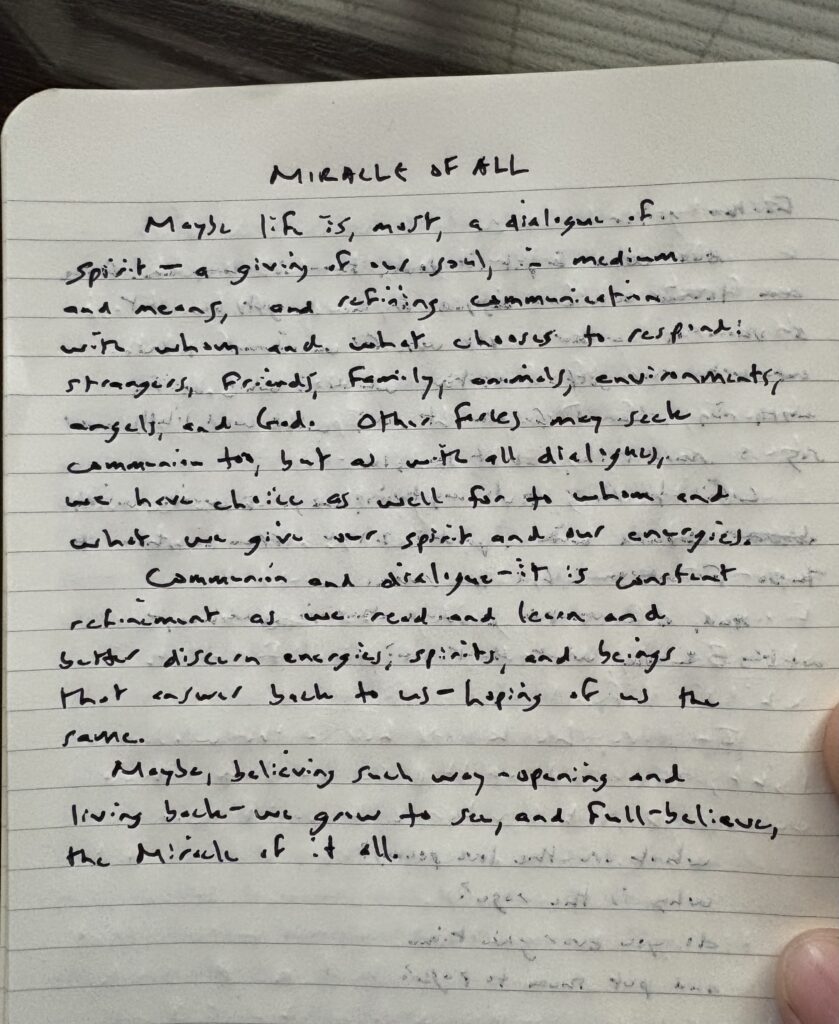 MIRACLE OF ALL
Maybe life is, most, a dialogue of
spirit – a giving of our soul, in medium
and means, and refining communication
with whom and what chooses to respond:
strangers, friends, family, animals, environments,
angels, and God. Other forces may seek
communion too, but as with all dialogues,
we have choice as well for to whom and
what we give our spirit and our energies.
Communion and dialogue – it is constant
refinement as we read and learn and
better discern energies, spirits, and beings
that answer back to us – hoping of us the
same.
Maybe, believing such way – opening and
living back – we grow to see, and full-believe,
the Miracle of it all.